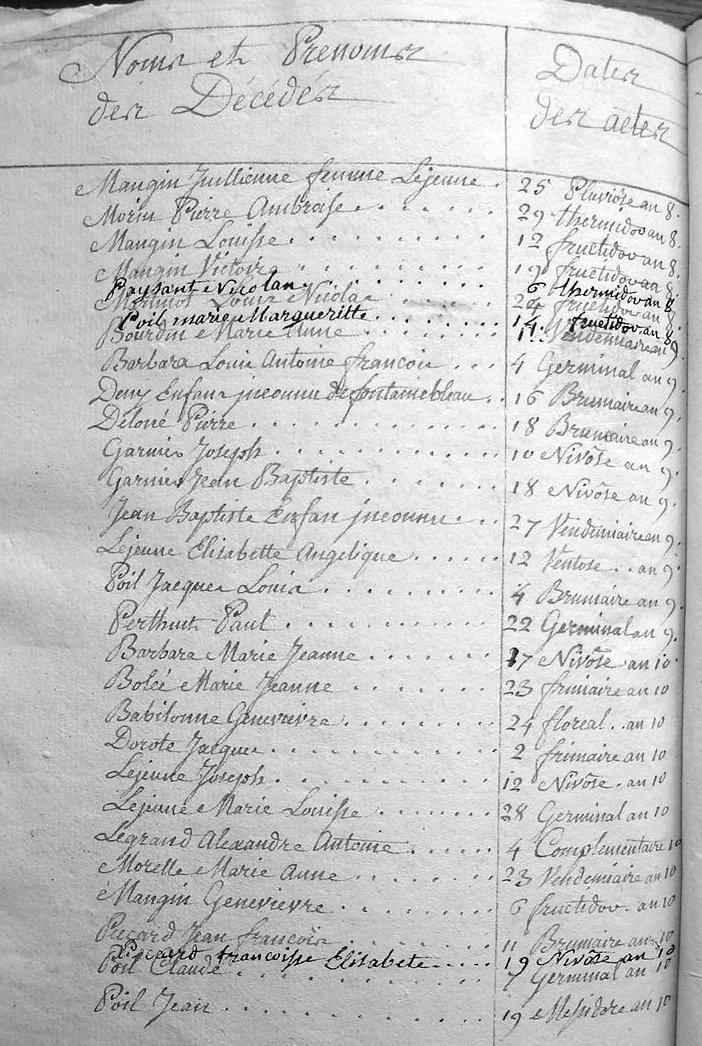 Noms et Prenoms
des Décédés
Dates
des actes
Mangin Jullienne femme Lejeune . 25 Pluviôse an 8.
Morin Pierre Ambroise . . . . . . . 29 thermidor an 8.
Mangin Louisse . . . . . . . . 12 fructidor an 8.
Mangin Victoire 19 fructidor an 8.
Paysant Nicolas . . . . . . . . 6 thermidor an 8
Louis Nicolas fructidor an 8.
Poil marie Margueritte . . . . . . . 14 fructidor an 8
Bourdin Marie Anne . . . . . . . Vendemiaire an 9
Barbara Louis Antoine francois . . . 4 Germinal an 9.
Deny Enfans jnconnu de fontainebleau . . 16 Brumaire an 9.
Déloné Pierre . . . . . . . . . 18 Brumaire an 9.
Garnier Joseph . . . . . . . . . 10 Nivôse an 9.
Garnier Jean Baptiste . . . . . . 18 Nivôse an 9.
Jean Baptiste Enfan jnconnu . . . 27 Vendemiaire an 9.
Lejeune Elisabette Angelique . . . . . 12 Ventose . . an 9.
Poil Jacques Louis . . . . . . . . 4 Brumaire an 9.
Perthuis Paul . . . . . . . . . 22 Germinal an 9.
Barbare Marie Jeanne . . . . . . 17 Nivôse an 10.
Bolée Marie Jeanne . . . . . . 23 frimaire an 10
Babilonne Genevievre . . . . . . . 24 floreal . . an 10
Dorote Jacques . . . . . . . . . 2 frimaire an 10
Lejeune Joseph . . . . . . . . . 12 Nivôse . an 10
Lejeune Marie Louisse . . . . . . . 28 Germinal an 10
Legrand Alexandre Antoine . . . . . 4 Complementaire 10
Morelle Marie Anne . . . . . . . 23 Vendemiaire an 10
Mangin Genevievre . . . . . . . 6 fructidor . an 10
Piccard Jean francois . . . . . . 11 Brumaire an 10
Piccard francoisse Elisabete . . . . . 19 Nivôse an 10
Poil Claude . . . . . . . . . 7 Germinal an 10
Poil Jean . . . . . . . . . . . 19 Messidore an 10